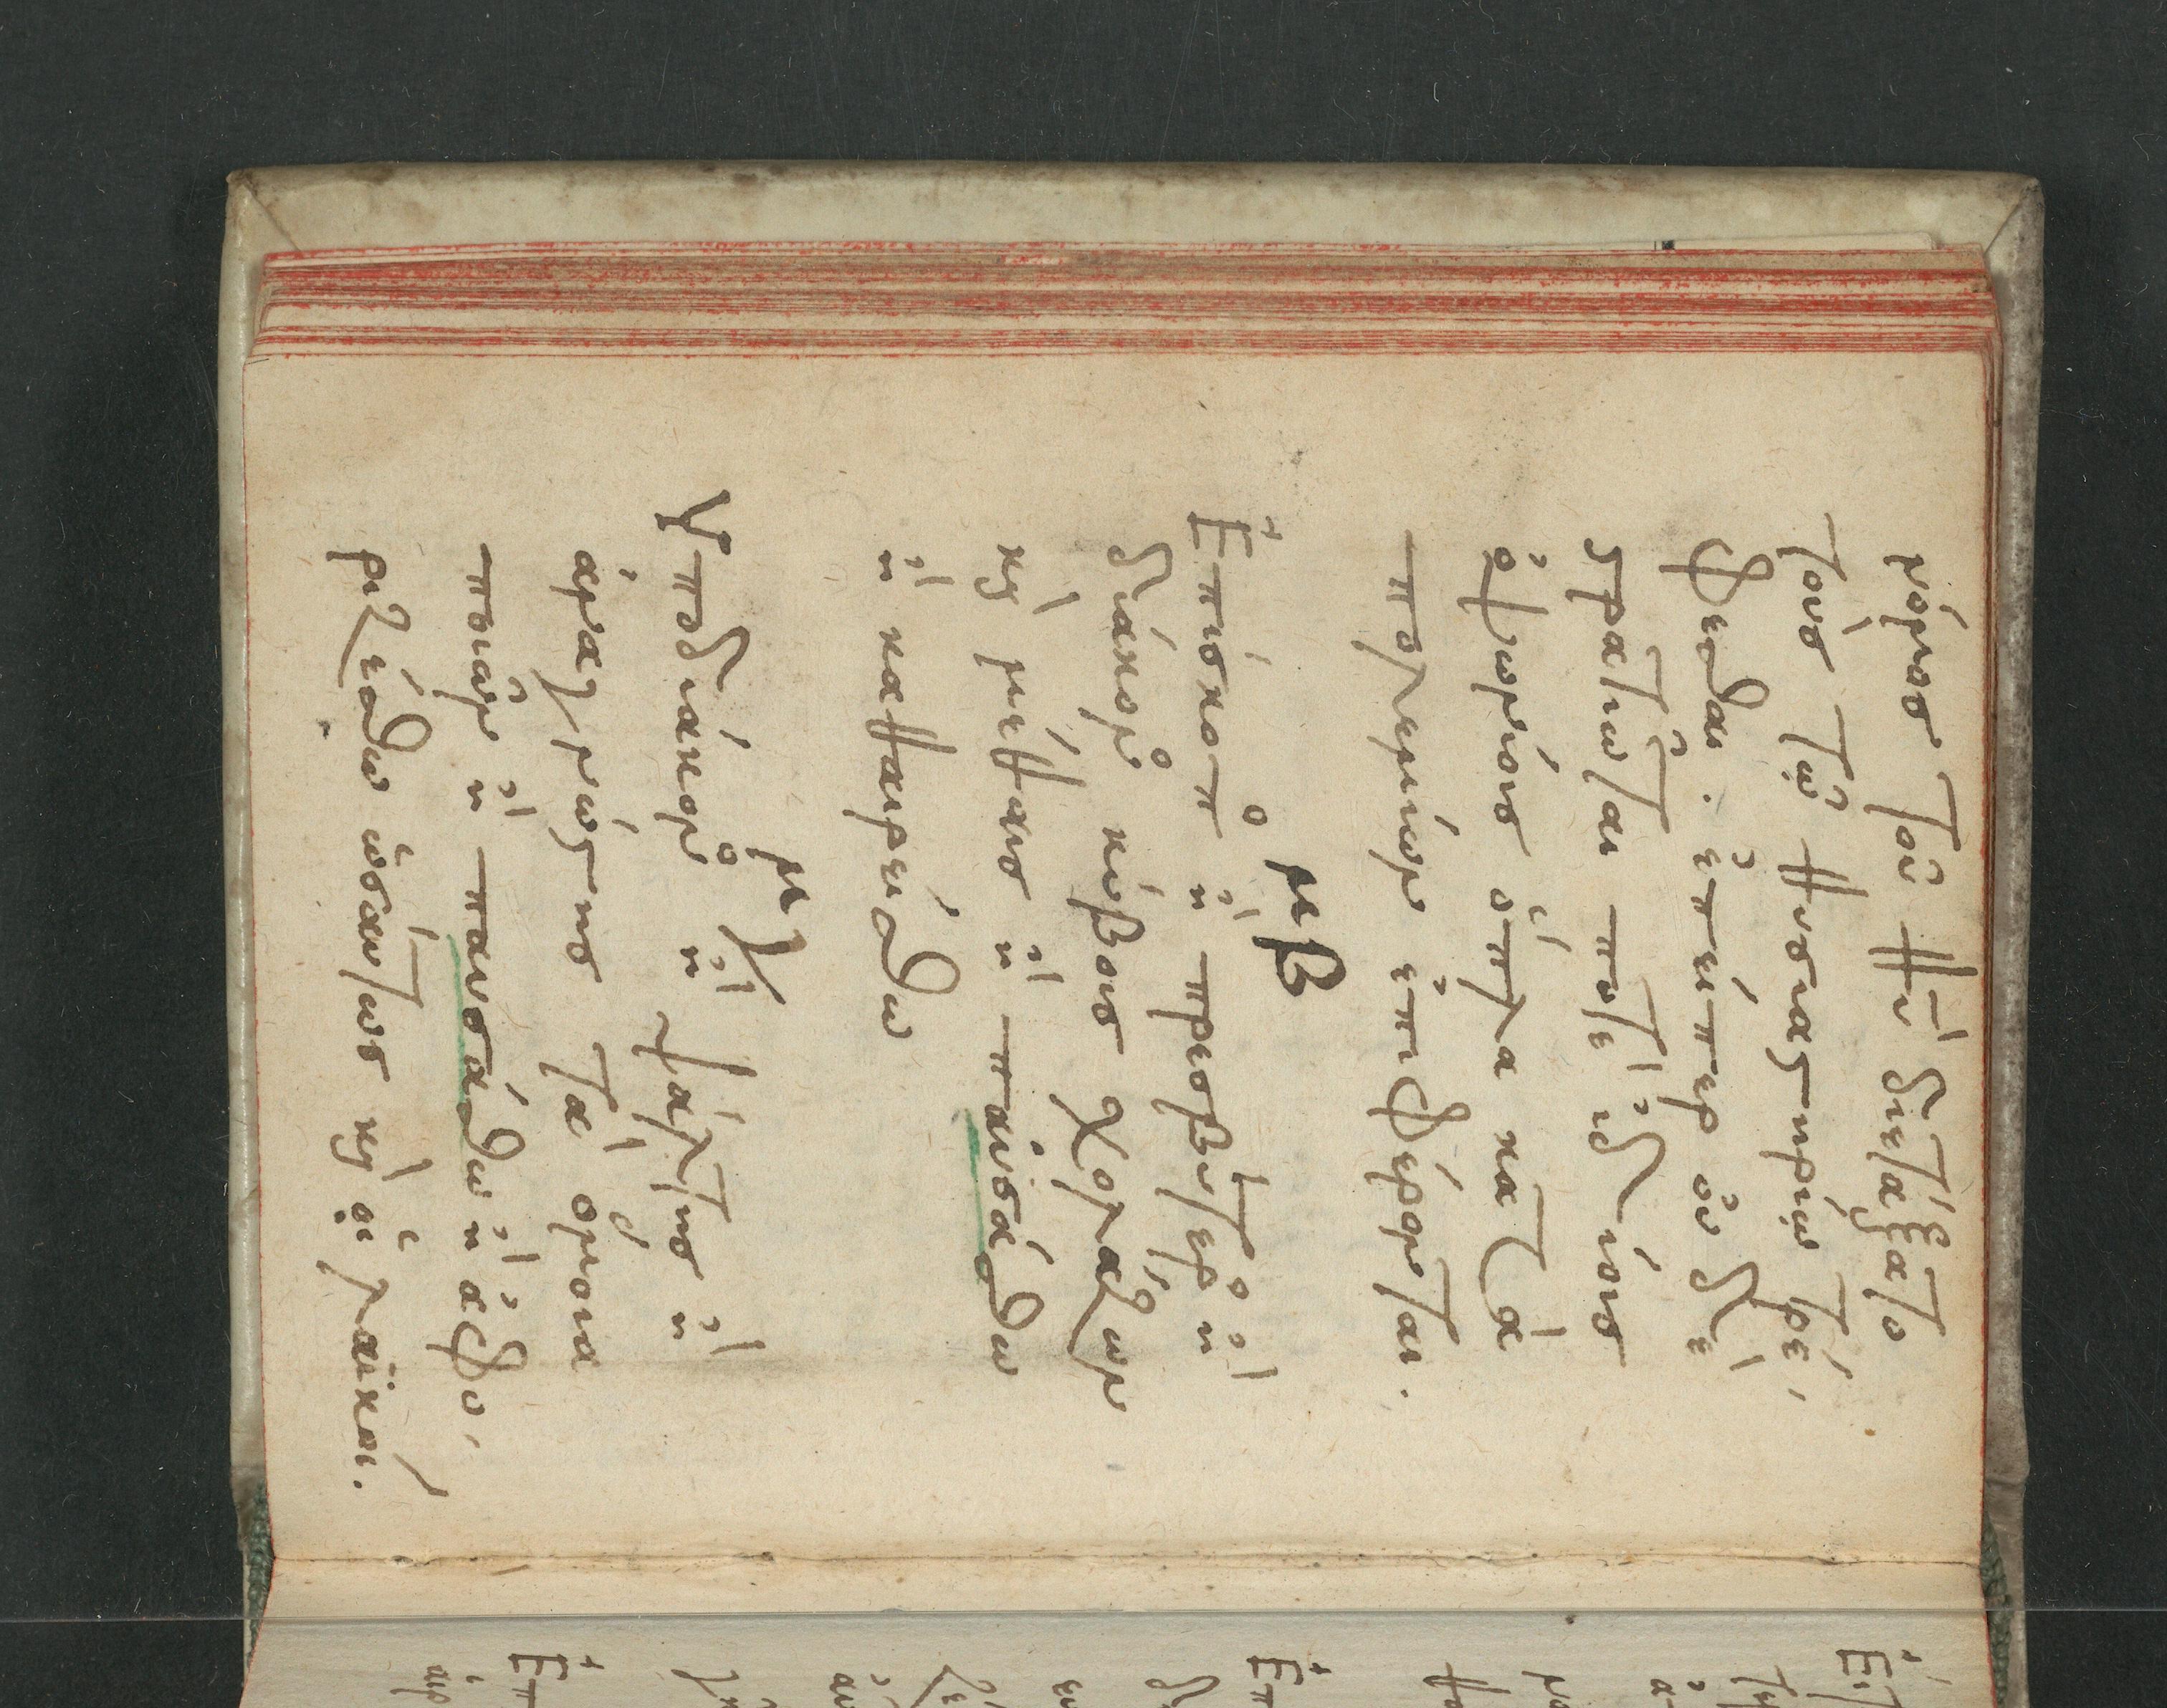 νόμος τοῦ θυ̅ διετάξατο
τοὺς τῷ θυσιαστηρίῳ τρέ-
φεσθαι. ἐπείπερ οὐδὲ
στρατιῶται ποτὲ ἰδίοις
ὀψωνίοις ὅπλα κατὰ
πολεμίων ἐπιφέρονται.
μβ
Ἐπίσκοπος ἢ πρεσβύτερος ἢ
διάκονος κύβοις σχολάζων
καὶ μέθαις ἢ παυσάσθω
ἢ καθαιρείσθω
μγ
Ὑποδιάκονος ἢ ψάλτης ἢ
ἀναγνώστης τὰ ὅμοια
ποιῶν ἢ παυσάσθω ἢ ἀφο-
ριζέσθω ὡσαύτως καὶ οἱ λαϊκοί.